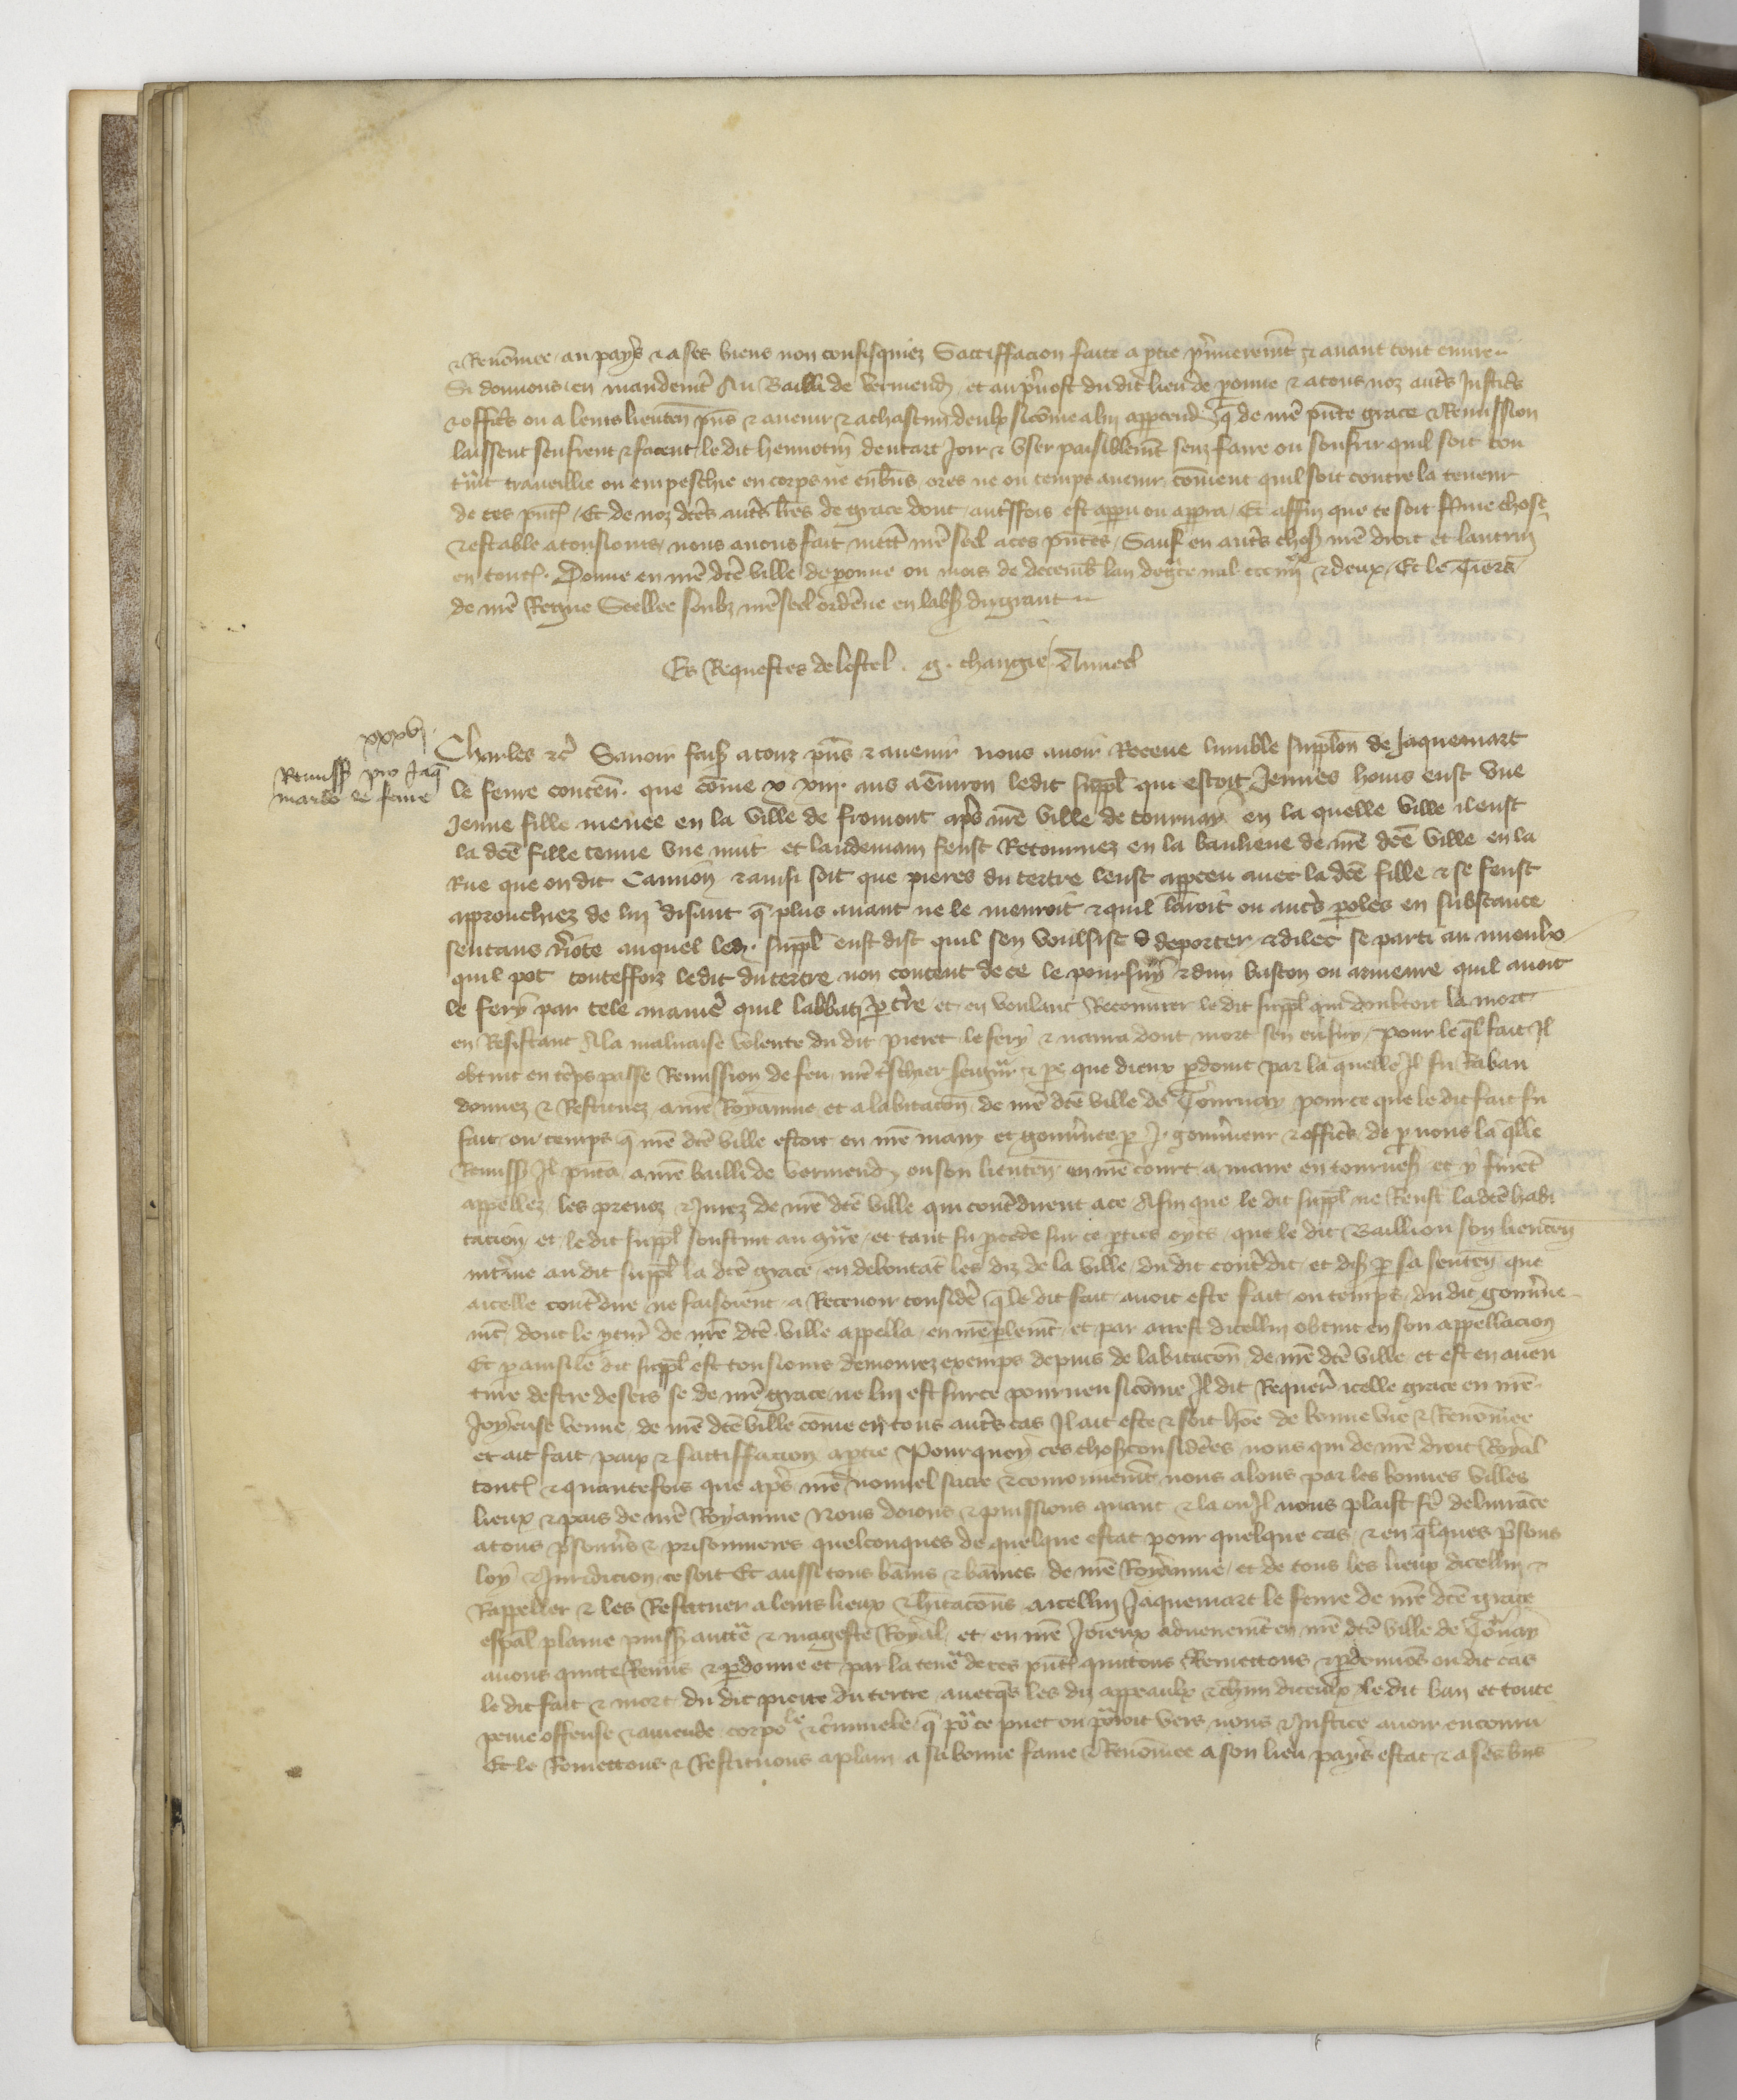 & Renōmee au pays & a ses biens non confisquiez Sattiffacion faite a ptie p̄mieremēt & avant tout euvre
Si donnons en mandemt̄ Au Bailli de Vermend et au pvost du dit lieu de peronne & a tous noz aut̄s Justic̄s
& offic̄s ou a leurs lieuten̄ pn̄s & avenir & a chascun deulx si cōme a luy appartend q̄ de nr̄e pn̄te grace & Remission
laissent seuffrent & facent le dit hennotin deutart Joir & user paisiblemēt senz faire ou souffrir quil soit con
tr̄nt travaillie ou empeschie en corps ne en bn̄s ores ne ou temps avenir cōment quil soit contre la teneur
de ces pn̄t Et de noz dc̄es aut̄s lr̄es de grace dont aut̄ffois est apparu ou apperra Et affin que ce soit ferme chose
& estable a tousiours nous avons fait mettr̄ nr̄e seel a ces pn̄tes Sauf en aut̄s choses nr̄e droit et lautruy
en tout Donne en nr̄e dc̄e ville de peronne ou mois de decemb̄ lan de gr̄ce mil ccc iiii xx & deux Et le Tiers
de nr̄e Regne Seellee soubz nr̄e seel ordēne en labs̄ du grant
Es Requestes de lostel . g. changie Aimed
xxxvj
Remiss̄ pro Jaq̄
marto le fevre
Charles &c̄ Savoir fais̄ a touz pn̄s & avenir nous avoir Receue lumble supplōn de Jaquemart
le fevre conten̄ . que cōme x xiii ans a environ ledit suppl̄ qui estoit Jeunes homs eust une
Jeune fille menee en la ville de fromont ap̄s nr̄e ville de tournay en la quelle ville il eust
la dc̄e fille tenue une nuit et landemain feust Retournez en la banlieue de nr̄e dc̄e ville en la
Rue que on dit Cannon & ainsi soit que pieres du tertre leust appceu avec la dc̄e fille & se feust
approuchiez de luy disant q̄ plus avant ne le menroit & quil lairoit ou aut̄s paroles en substance
auquel led. suppl̄ eust dist quil sen voulsist deporter & dilec se parti au mieulx
quil pot touteffoiz ledit du tertre non content de ce le poursuy & dun baston ou armeure quil avoit
le fery par tele manie quil labbati p t̄re et en voulant Recouvrer le dit suppl̄ qui doubtoit la mort
en Resistant A la malvaise volente du dit pieret le fery & navra dont mort sen ensuy pour le ql̄ fait Il
obtint en tēps passe Remission de feu nr̄e t̄schier seigūr & pe que dieux pardoint par la quelle Il fu Raban
donnez & Restituez a nr̄e Royaume et a labitacōn de nr̄e dc̄e ville de Tournay pour ce que le dit fait fu
fait ou temps q̄ nr̄e dc̄e ville estoit en nr̄e main et gouv̄nee p J. gouv̄neur & offic̄s de p nous la qlle
Remiss̄ Il pn̄ta a nr̄e bailli de vermend ou son lieuten̄ en nr̄e court a maire en tournes̄ et y furēt
appellez les prevoz & Jurez de nr̄e dc̄e ville qui cont̄dirent a ce Afin que le dit suppl̄ ne Reust la dc̄e habi
tacion et le dit suppl̄ soustint au c̄ntre et tant fu procede sur ce pties oyes que le dit Bailli ou son lieuten̄
int̄ine au dit suppl̄ la dc̄e grace en deboutāt les diz de la ville du dit cont̄dit et dis̄ p sa senten̄ que
a icelle cont̄dire ne faisoient a Recevoir consid̄e q̄ le dit fait avoit este fait ou temps du dit gouv̄ne
mt̄ dont le pcur̄ de nr̄e dc̄e ville appella en nr̄e plemt̄ et par arrest dicelluy obtint en son appellacion
Et p ainsi le dit suppl̄ est tousiours demourez exemps depuis de labitacōn de nr̄e dc̄e ville et est en aven
ture destre desers se de nr̄e grace ne luy est sur ce pourveu si cōme Il dit Requer̄ icelle grace en nr̄e
Joyeuse venue de nr̄e dc̄e ville cōme en tous aut̄s cas Il ait este & soit hōe de bonne vie & Renōmee
et ait fait paix & sattiffacion a ptie Pourquoy ces choses considēes nous qui de nr̄e droit Royal
tout & quantefois que ap̄s nr̄e nouvel sacre & couronnemēt nous alons par les bonnes villes
lieux & pais de nr̄e Royaume Nous doions & puissions quant & la ou Il nous plaist fē delivrāce
a tous p̄sonn̄s & prisonnieres quelconques de quelque estat pour quelque cas & en qlques p̄sons
loy & Juridicion ce soit Et aussi tous bānis & bānies de nr̄e Royaume et de tous les lieux dicelluy
Rappeller & les Restituer a leurs lieux & hītacōns a icelluy Jaquemart le fevre de nr̄e dc̄e grace
esp̄al plaine puiss̄ auct̄e & mageste Royal et en nr̄e Joieux advenemēt en nr̄e dc̄e ville de Tournay
avons quicte Remis & pardonne et par la teneur de ces pn̄t quictons Remettons & pardonnōs ou dit cas
le dit fait & mort du dit pierre du tertre avecq̄s les diz appeaulx & chūn diceulx le dit ban et toute
peine offense & amende corpole & c̄iminele q̄ po ce puet ou poroit vers nous & Justice avoir encouru
Et le Remettons & Restituons a plain a sa bonne fame & Renōmee a son lieu pays estat & a ses bn̄s